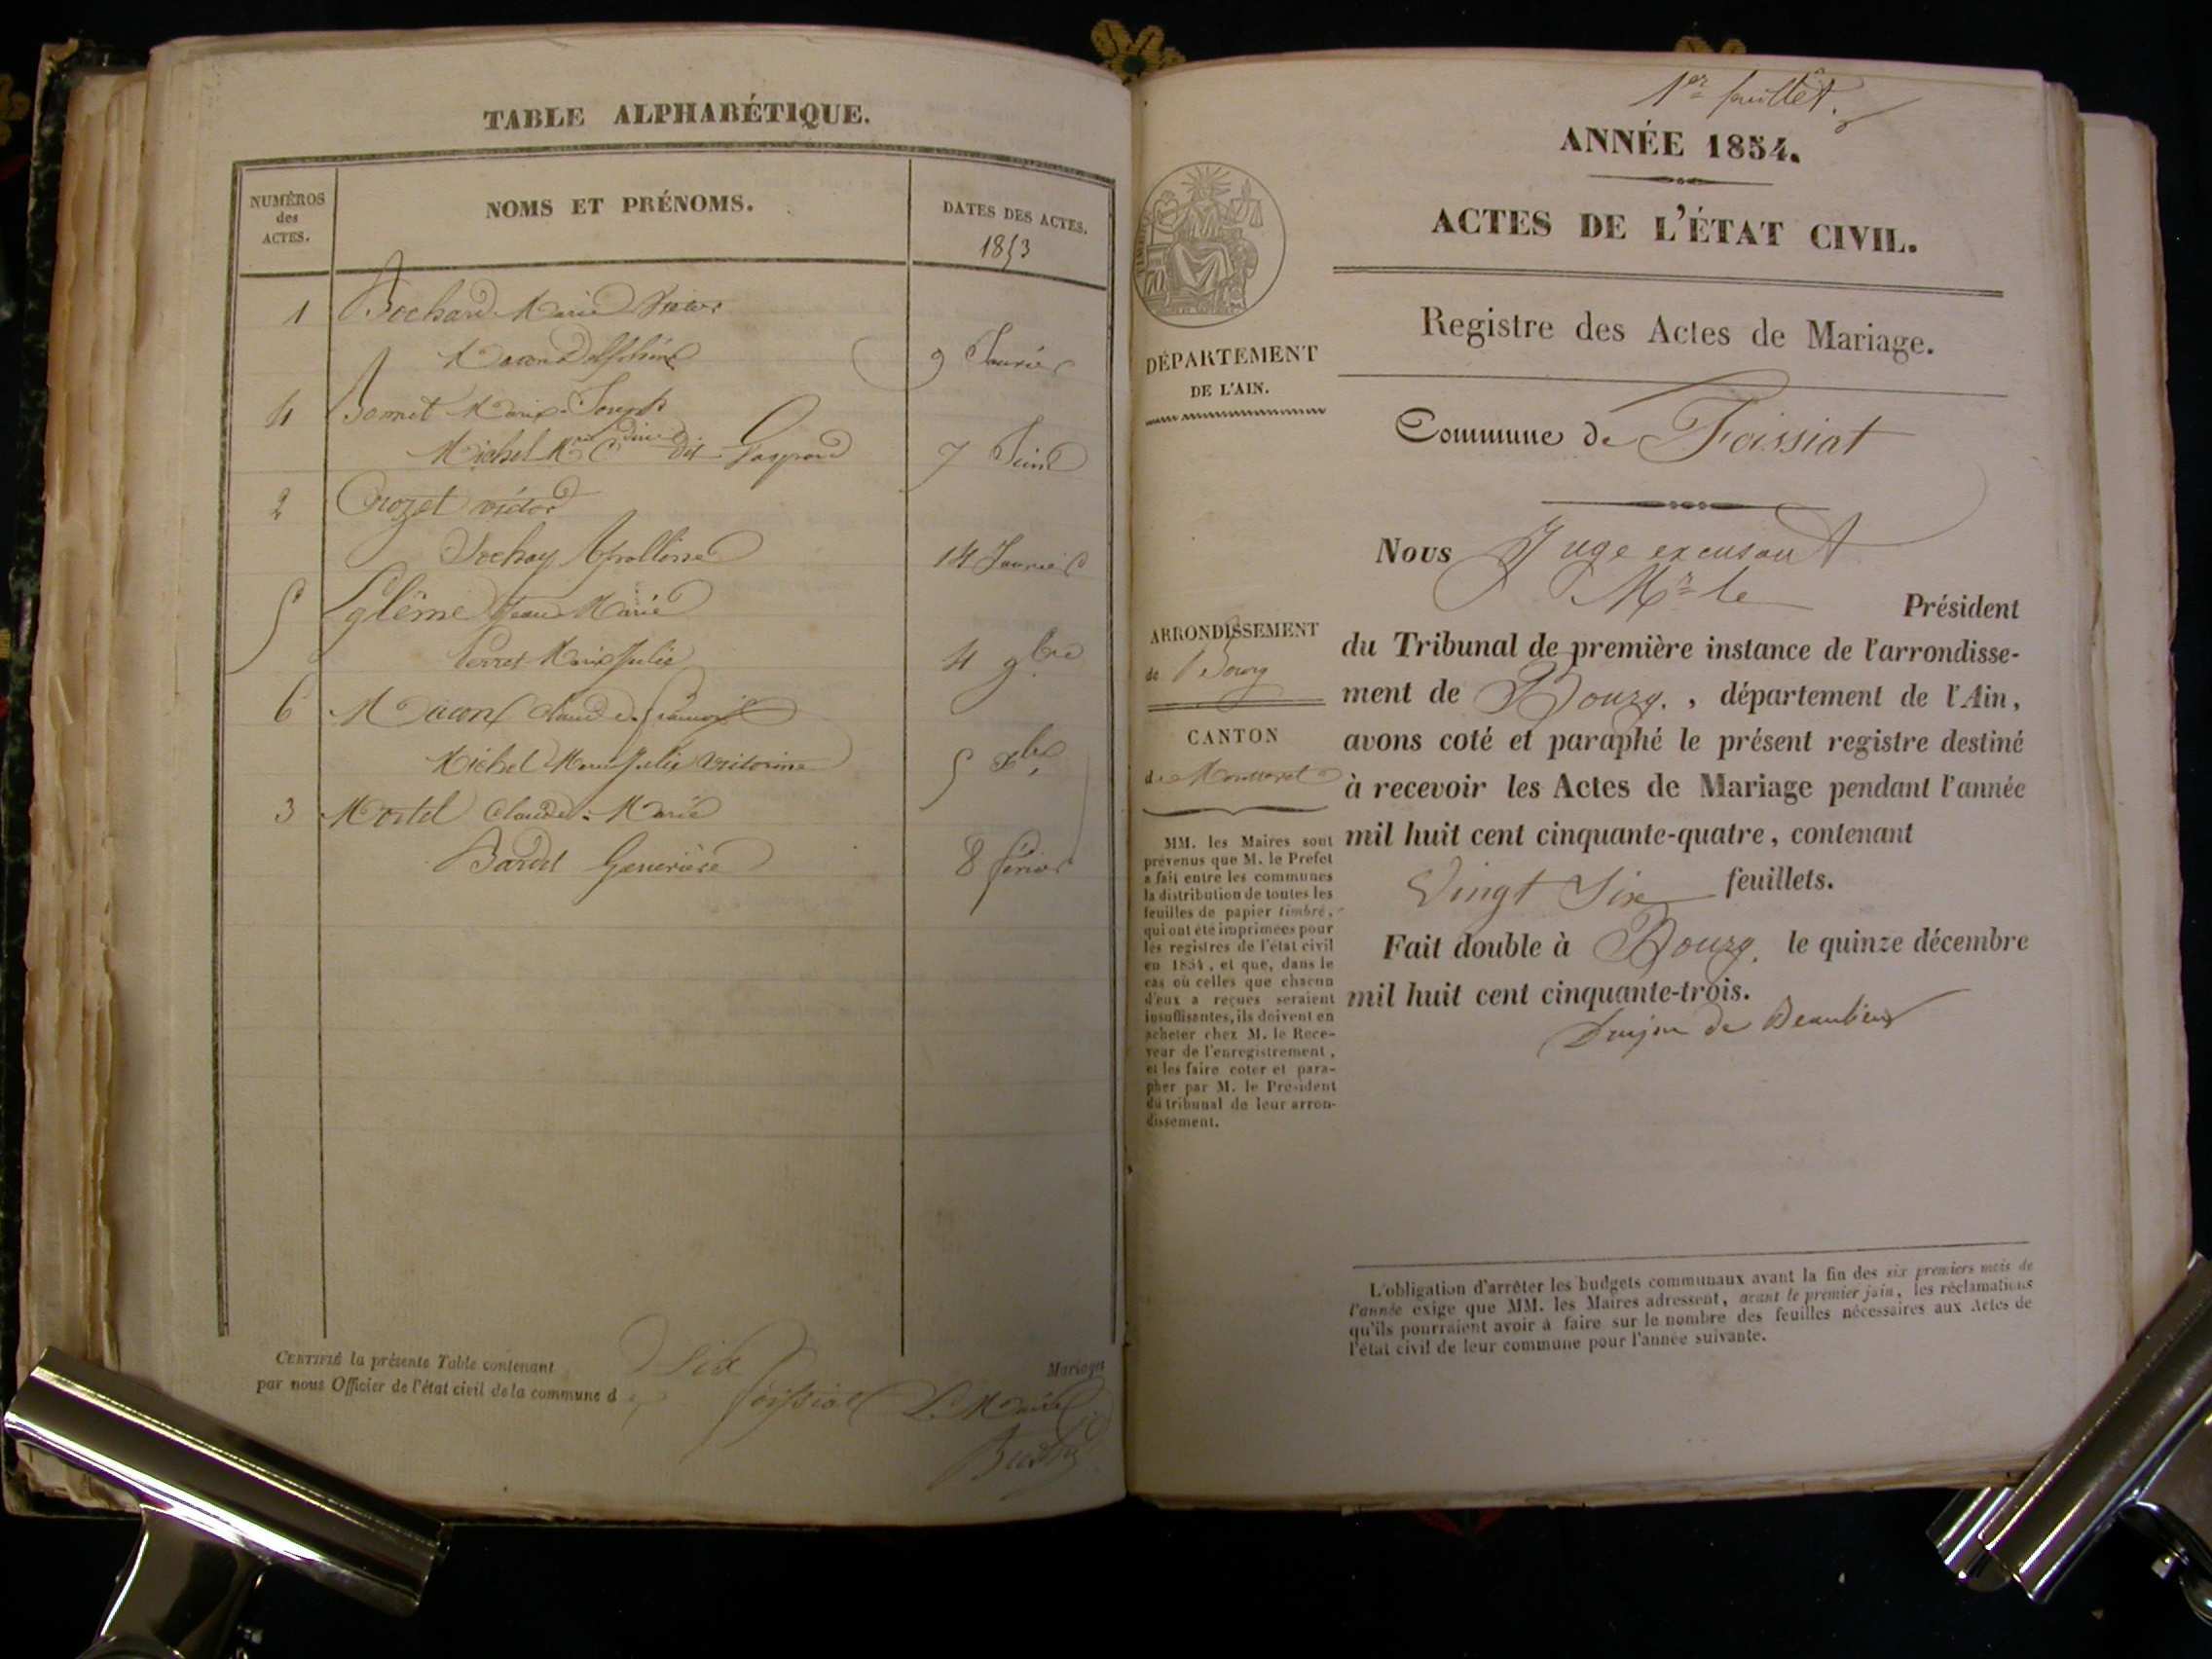 TABLE ALPHABÉTIQUE.
NUMÉROS
des
ACTES.
NOMS ET PRÉNOMS.
DATES DES ACTES.
1853
1 Bochard Marie
Macon Delphine 9 Janvier
4 Bonnet Marie Joseph
Michel dit Gaspard 7 Juin
2 Crozet victor
Apolline 14 Janvier
5 Jean Marie
Perret Marie Julie 4 9bre
6 Macon Claude François
Michel Marie Julie Victorine 5 Xbre
3 Mortel Claude-Marie
Bardet Geneviève 8 février
CERTIFIÉ la présente Table contenant Six Mariages
par nous Officier de l'état civil de la commune d Foissiat Le Maire
1er feuillet.
ANNÉE 1854.
ACTES DE L'ÉTAT CIVIL.
Registre des Actes de Mariage.
DÉPARTEMENT
DE L'AIN.
Commune de Foissiat
Nous Juge excusant
Mr le Président
du Tribunal de première instance de l'arrondisse-
ment de Bourg. , département de l'Ain,
avons coté et paraphé le présent registre destiné
à recevoir les Actes de Mariage pendant l'année
mil huit cent cinquante-quatre, contenant
Vingt Six feuillets.
Fait double à Bourg. le quinze décembre
mil huit cent cinquante-trois.
Dujon de Beaulieu
ARRONDISSEMENT
de Bourg
CANTON
de Montrevel
MM. les Maires sont
prévenus que M. le Préfet
a fait entre les communes
la distribution de toutes les
feuilles de papier timbré,
qui ont été imprimées pour
les registres de l'état civil
en 1854, et que, dans le
cas où celles que chacun
d'eux a reçues seraient
insuffisantes, ils doivent en
acheter chez M. le Rece-
veur de l'enregistrement,
et les faire coter et para-
pher par M. le Président
du tribunal de leur arron-
dissement.
L'obligation d'arrêter les budgets communaux avant la fin des six premiers mois de
l'année exige que MM. les Maires adressent, avant le premier juin, les réclamations
qu'ils pourraient avoir à faire sur le nombre des feuilles nécessaires aux Actes de
l'état civil de leur commune pour l'année suivante.